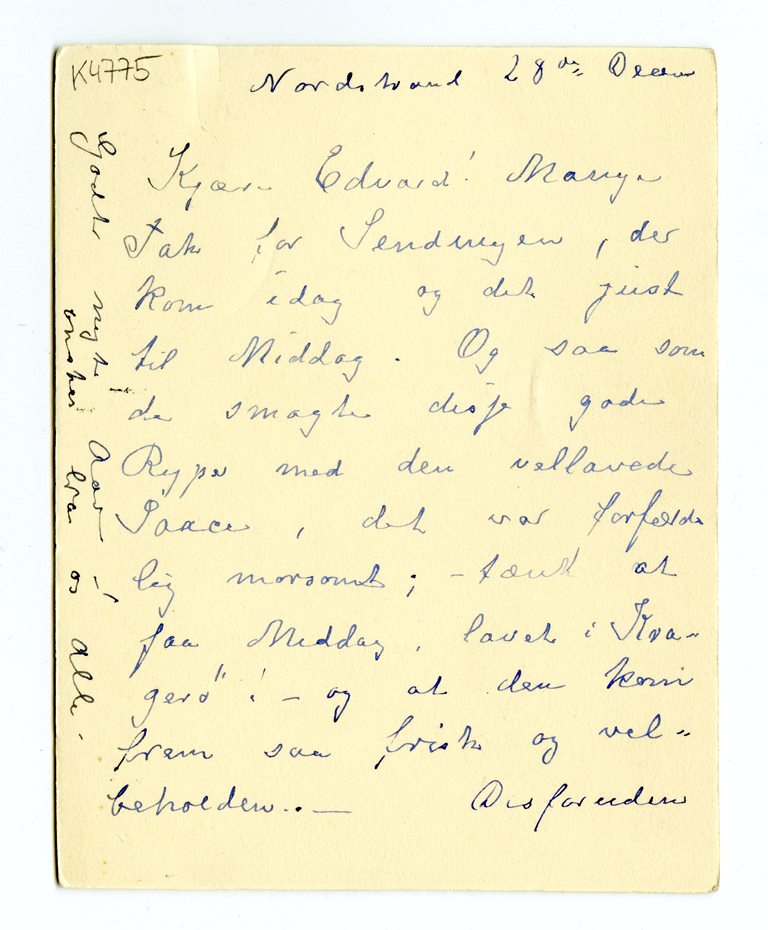 K4775
Nordstrand 28de Decem
Kjære Edvard! Mange
Tak for Sendingen, der
kom idag og det just
til Middag. Og saa som
de smagte disse gode
Ryper med den vellavede
Sauce, det var forfærde
lig morsomt; – tænk at
faa Middag, lavet i Kra-
gerö"! – og at den kom
frem saa frisk og vel-
beholden. . — Desforuden
Godt nyt Aar –!
ønskes fra os alle